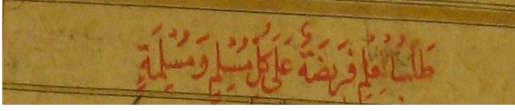 طَلَبُ الْعِلْمِ فَرِيضَةٌ عَلَى كُلِّ مُسْلِمٍ وَمُسْلِمَةٍ